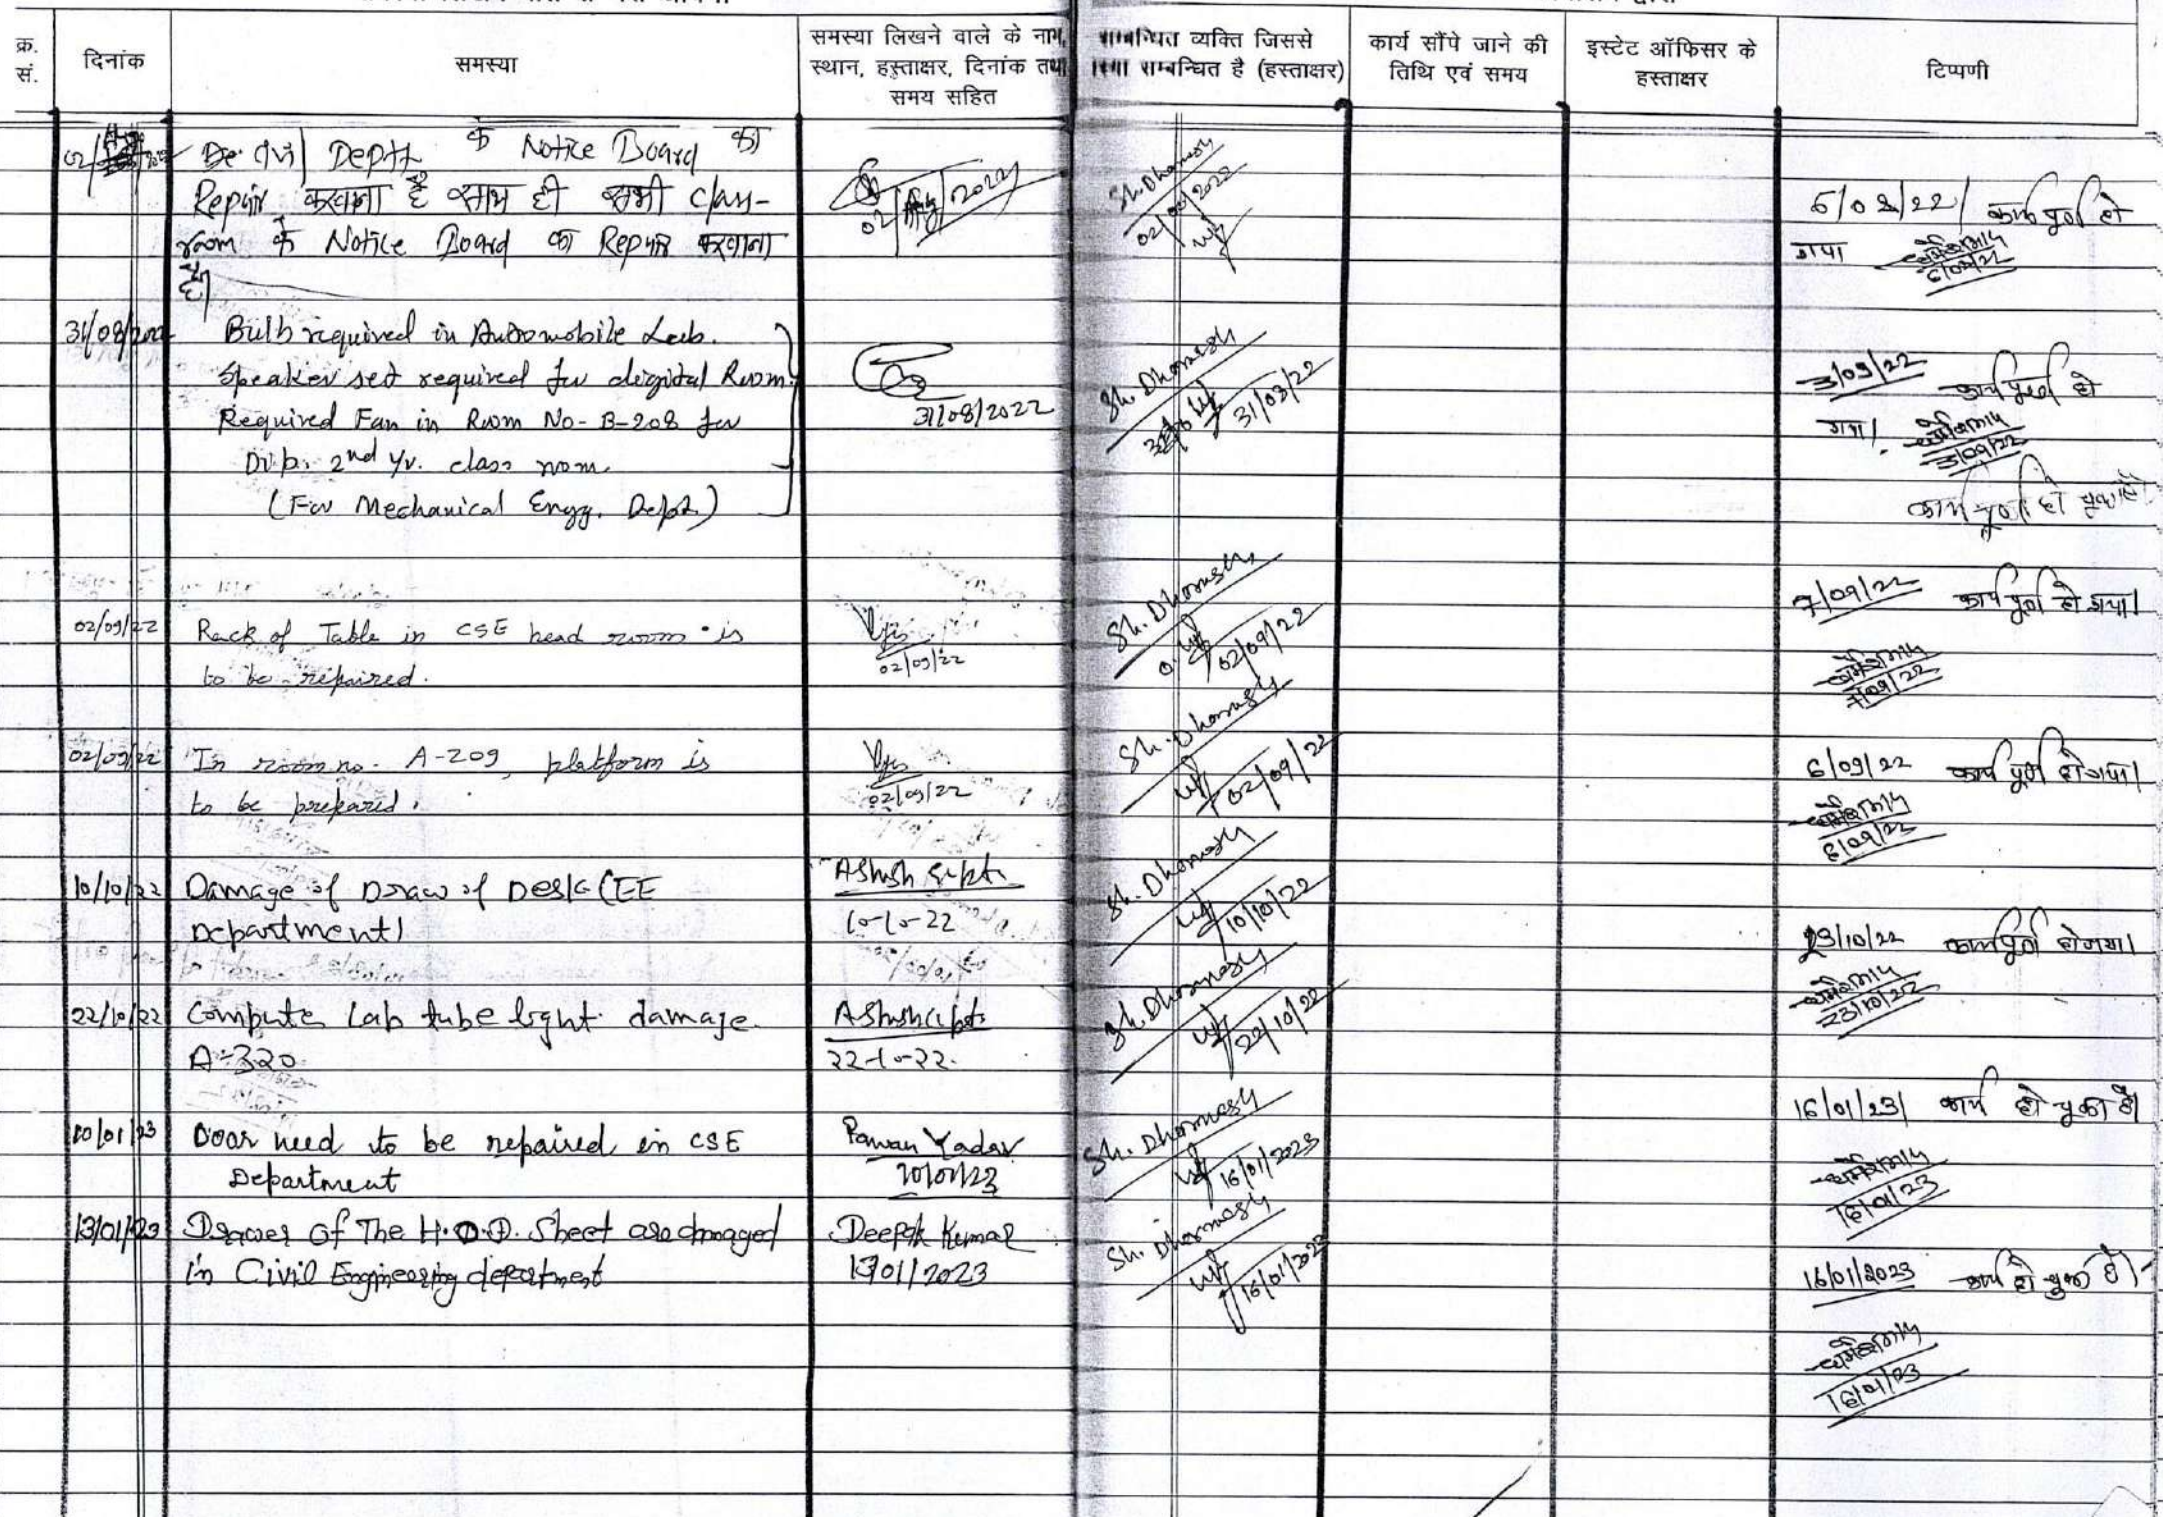 क्र. सं.
दिनांक
समस्या
समस्या लिखने वाले के नाम,
स्थान, हस्ताक्षर, दिनांक तथा
समय सहित
व्यक्ति जिससे
सम्बन्धित है (हस्ताक्षर)
कार्य सौंपे जाने की
तिथि एवं समय
इस्टेट ऑफिसर के
हस्ताक्षर
टिप्पणी
Deptt. के Notice Board का
Repair करवाना है साथ ही सभी class-
room के Notice Board का Repair करवाना
है।
02/Aug/2022
Sh. Dharmesh
कार्य पूर्ण हो
गया
31/08/2022
Bulb required in Automobile Lab.
Speaker set required for digital Room
Required Fan in Room No- B-208 for
Dip. 2nd yr. class room
(For Mechanical Engg. Dept.)
31/08/2022
Sh. Dharmesh
3/09/22 कार्य पूर्ण हो
गया।
3/09/22
कार्य पूर्ण हो चुका है।
02/09/22
Rack of Table in CSE head room is
to be repaired.
02/09/22
Sh. Dharmesh
02/09/22
7/09/22 कार्य पूर्ण हो गया।
7/09/22
02/09/22
In room no. A-209, platform is
to be prepared.
02/09/22
Sh. Dharmesh
02/09/22
6/09/22 कार्य पूर्ण हो गया।
6/09/22
10/10/22
Damage of Draw of Desk (EE
Department)
10-10-22
Sh. Dharmesh
10/10/22
22/10/22
Compute Lab tube light damage.
A-320
22-10-22.
Sh. Dharmesh
22/10/22
23/10/22 कार्य पूर्ण हो गया।
23/10/22
10/01/23
Door need to be repaired in CSE
Department
Pawan Yadav
10/01/23
Sh. Dharmesh
16/01/2023
16/01/23 कार्य हो चुका है।
16/01/23
13/01/23
Drawer of The H.O.D. Sheet are dmaged
in Civil Engineering department
Deepak Kumar
13/01/2023
Sh. Dharmesh
16/01/2023
16/01/2023 कार्य हो चुका है।
16/01/23